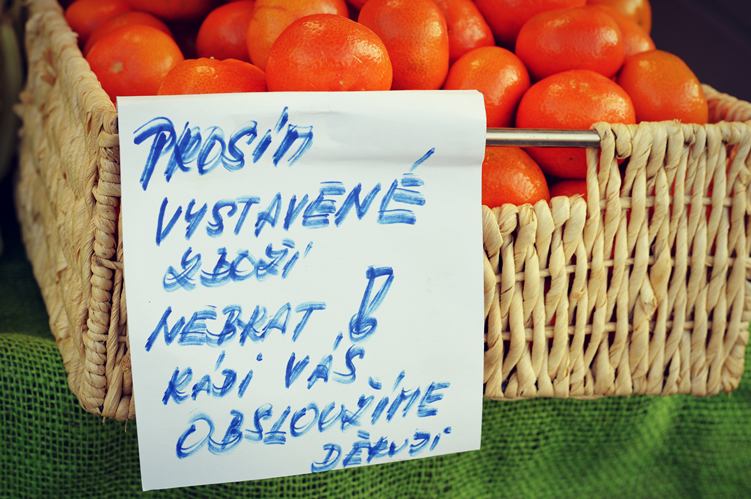 PROSÍM
VYSTAVENÉ
ZBOŽÍ
NEBRAT!
RÁDI VÁS
OBSLOUŽÍME
DĚKUJI